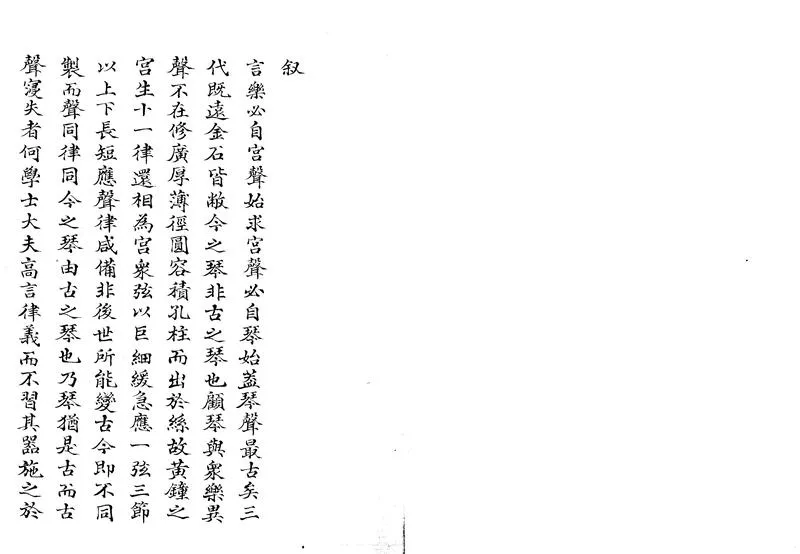 叙
言樂必自宮聲始求宮聲必自琴始蓋琴聲最古矣三
代既遠金石皆敝今之琴非古之琴也顧琴與衆樂異
聲不在修廣厚薄徑圓容積孔柱而出於絲故黃鐘之
宮生十一律還相為宮衆弦以巨細緩急應一弦三節
以上下長短應聲律咸備非後世所能變古今即不同
製而聲同律同今之琴由古之琴也乃琴猶是古而古
聲寖失者何學士大夫高言律義而不習其器施之於